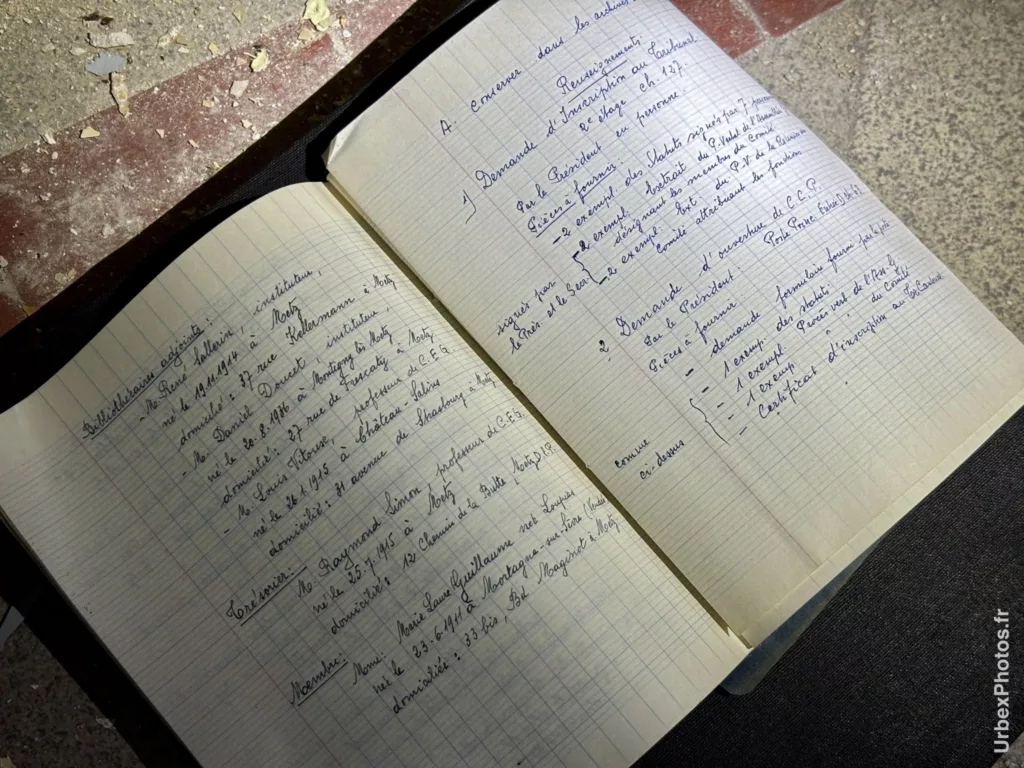 Bibliothécaires adjoints :
- M. René Sallerin, instituteur,
né le 19.11.1914 à Metz
domicilié : 37 rue Kellermann à Metz
- M. Daniel Doucet, instituteur,
né le 20.8.1936 à Montigny lès Metz
domicilié : 27 rue de Frescaty à Metz
- M. Louis Vitouse, professeur de C.E.G.
né le 26.1.1915 à Château-Salins
domicilié : 31 avenue de Strasbourg à Metz
Trésorier :
M. Raymond Simon, professeur de C.E.G.
né le 25.7.1915 à Metz
domicilié : 12 Chemin de la Butte, Metz
Membre :
Mme. Marie Laure Guillaume née Loupias
née le 23-6-1911 à Mortagne-sur-Sèvre (Vendée
domiciliée : 33 bis, Bd Maginot à Metz
A conserver dans les archives.
Renseignements.
1) Demande d'Inscription au Tribunal
2e étage ch. 127.
Par le Président en personne
Pièces à fournir :
- 2 exempl. des statuts signés par 7
- 2 exempl. Extrait du P. Verbal de l'Assemblée
désignant les membres du Comité
- 2 exempl. Ext. du P.V. de la Réunion du
Comité attribuant les fonctions
signés par
le Prés. et le Secr.
2 Demande d'ouverture de C.C.P.
Par le Président : Poste
Pièces à fournir
- demande formulaire fourni par la poste
- 1 exemp. des statuts
- 1 exempl. Procès verb. de l'Ass.
- 1 exemp. " " du Comité
- Certificat d'inscription au
comme
ci-dessus
UrbexPhotos.fr